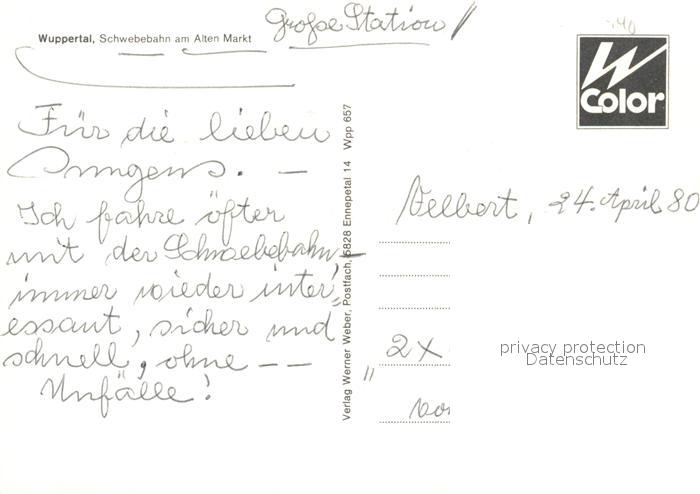 Große Station
Wuppertal, Schwebebahn am Alten Markt
W
Color
Für die lieben
Jungens. —
Ich fahre öfter
mit der Schwebebahn,—
immer wieder inter=
essant, sicher und
schnell, ohne — —
Unfälle!
Verlag Werner Weber, Postfach, 5828 Ennepetal 14 Wpp 657
Velbert, 24. April 80
2x
privacy protection
Datenschutz